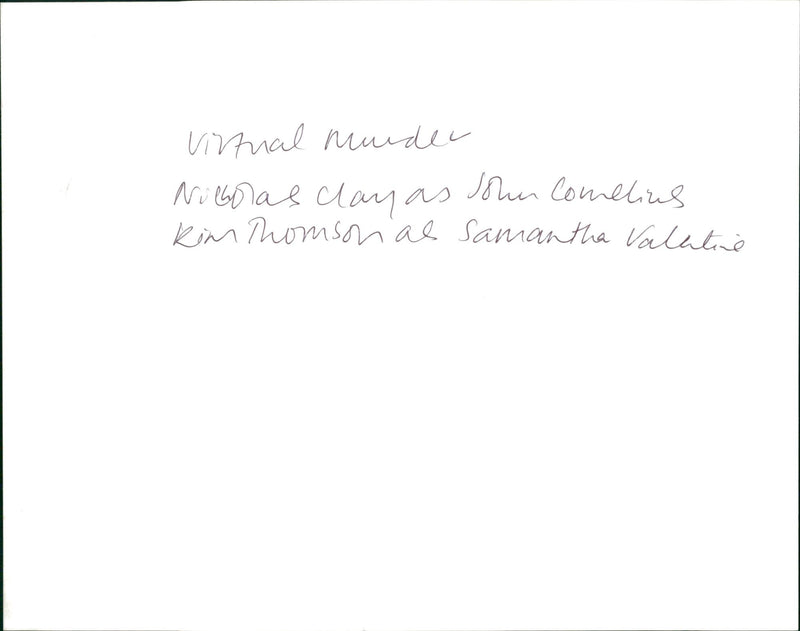 Virtual Murder
Nicholas Clay as John Cornelius
Kim Thomson as Samantha Valentine